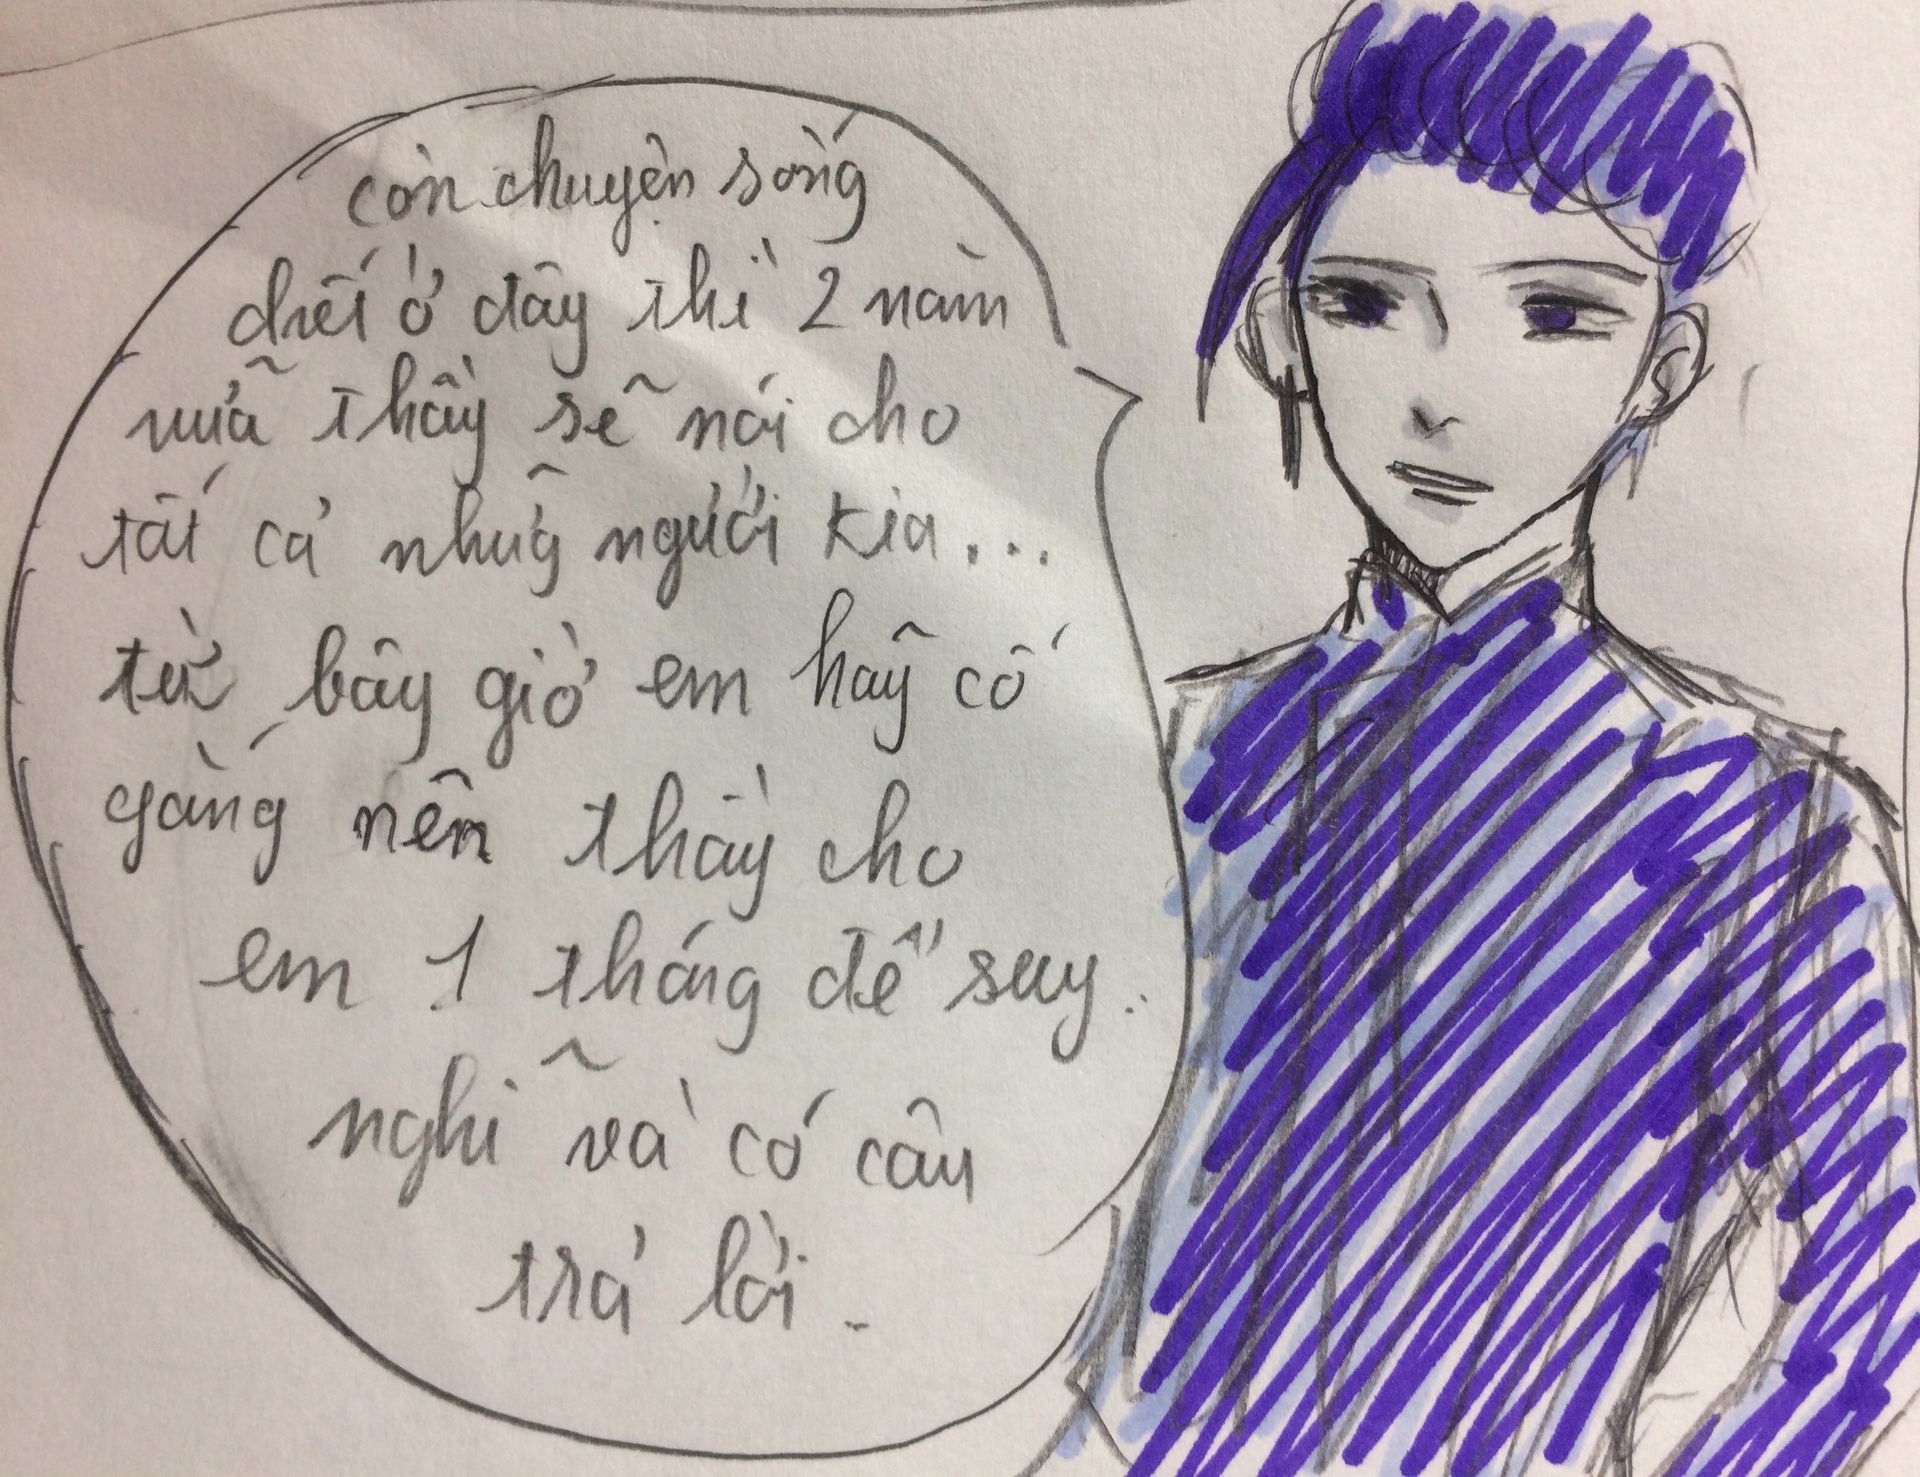 còn chuyện sống
chết ở đây thì 2 năm
nữa thầy sẽ nói cho
tất cả những người kia...
từ bây giờ em hãy cố
gắng nên thầy cho
em 1 tháng để suy
nghĩ và có câu
trả lời.